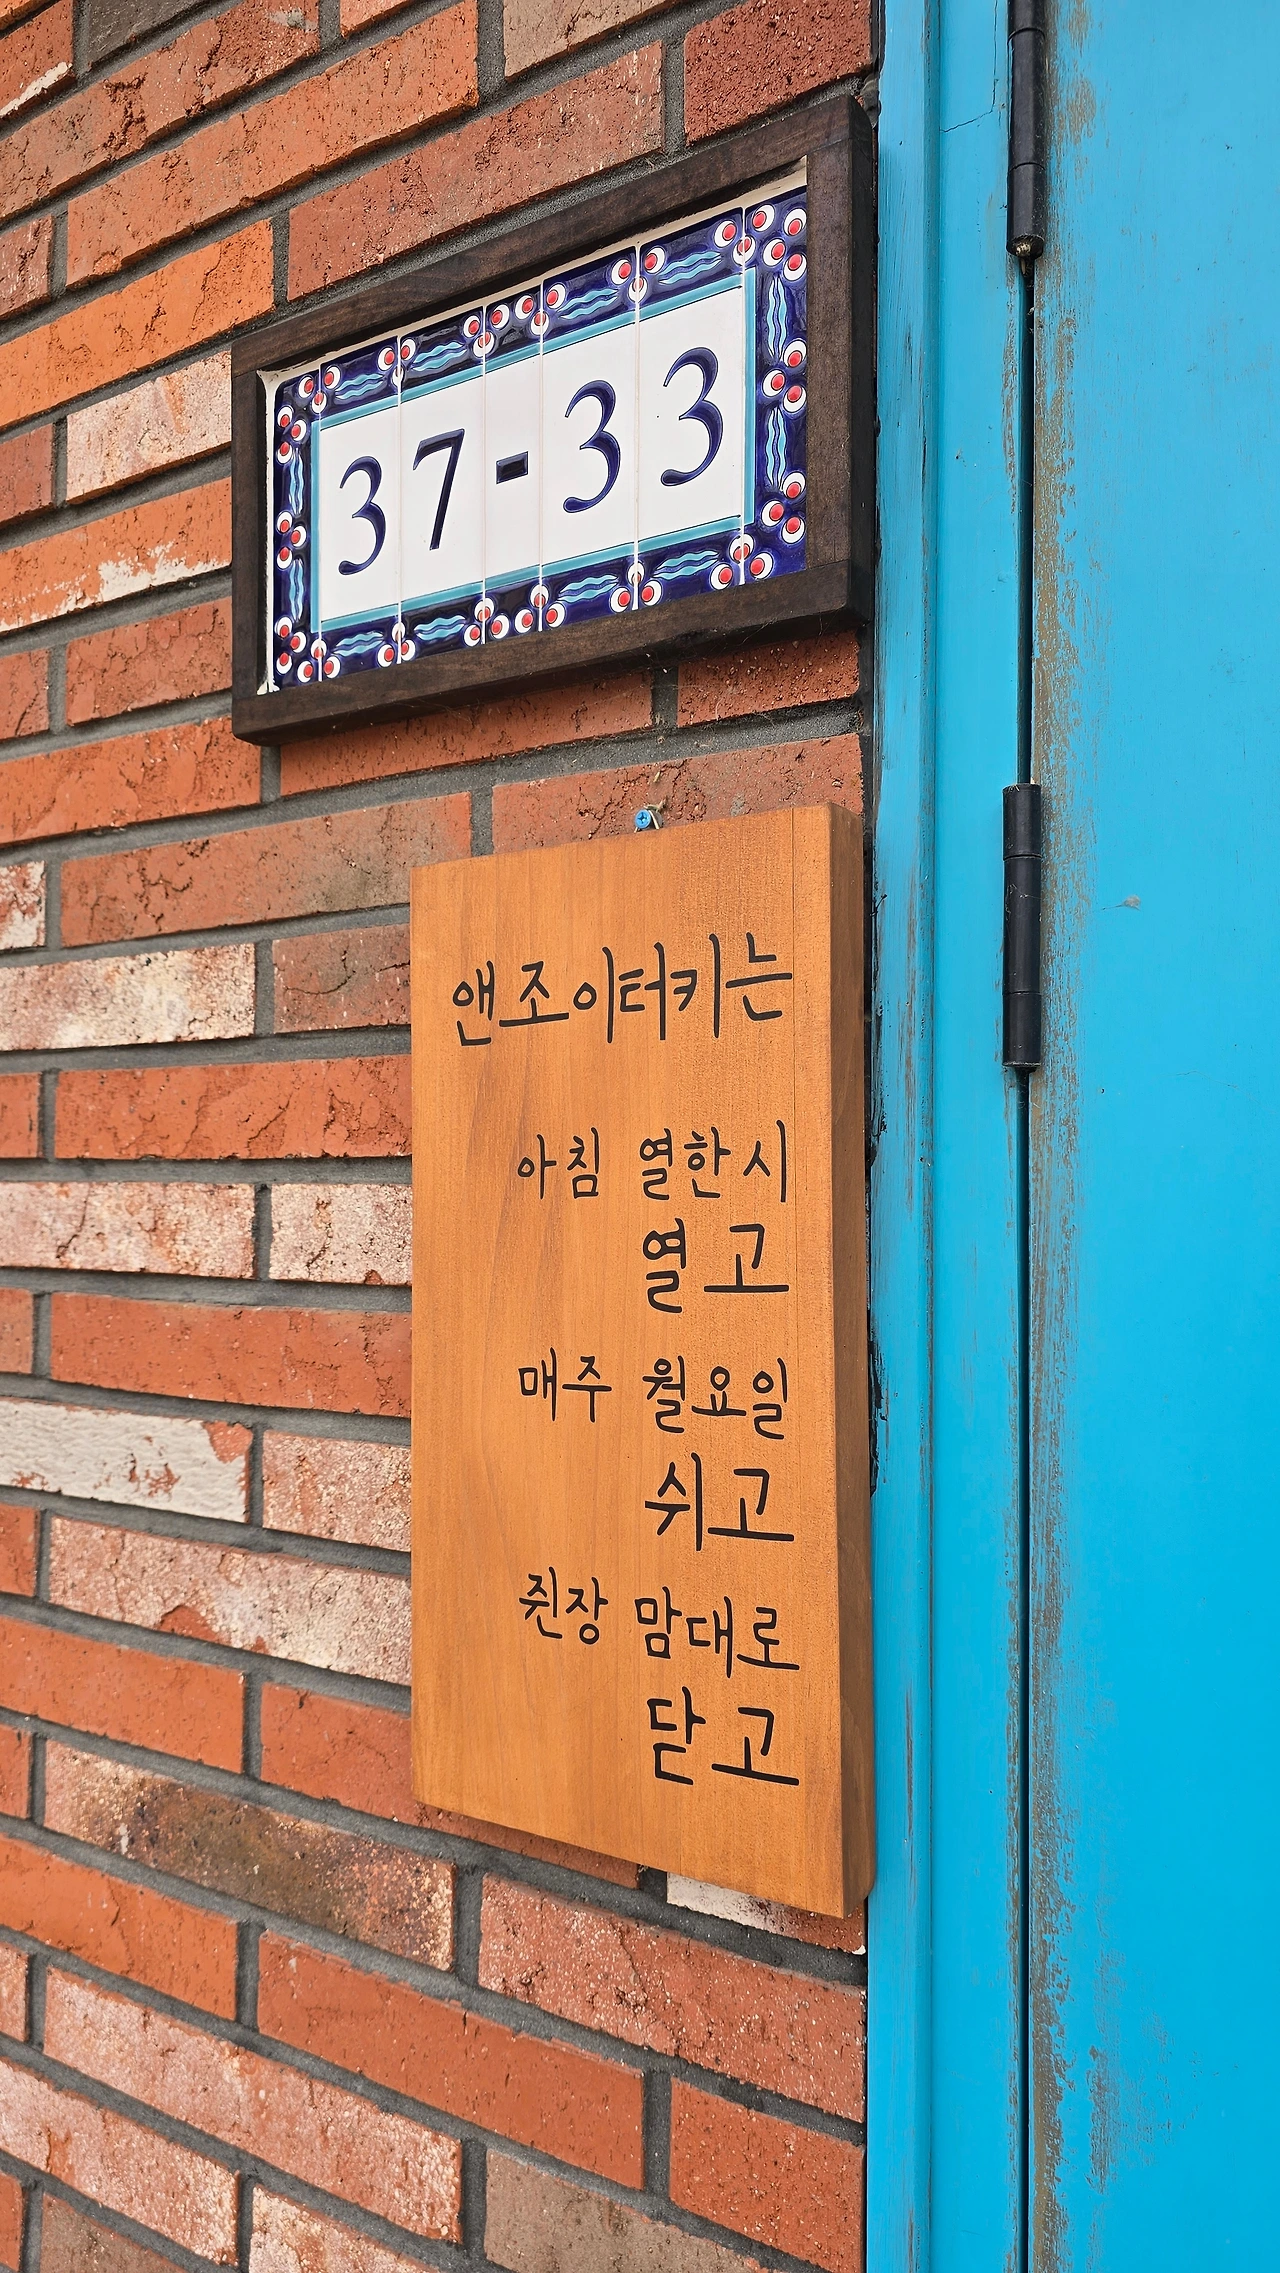 37-33
앤조이터키는
아침 열한시
열고
매주 월요일
쉬고
쥔장 맘대로
닫고